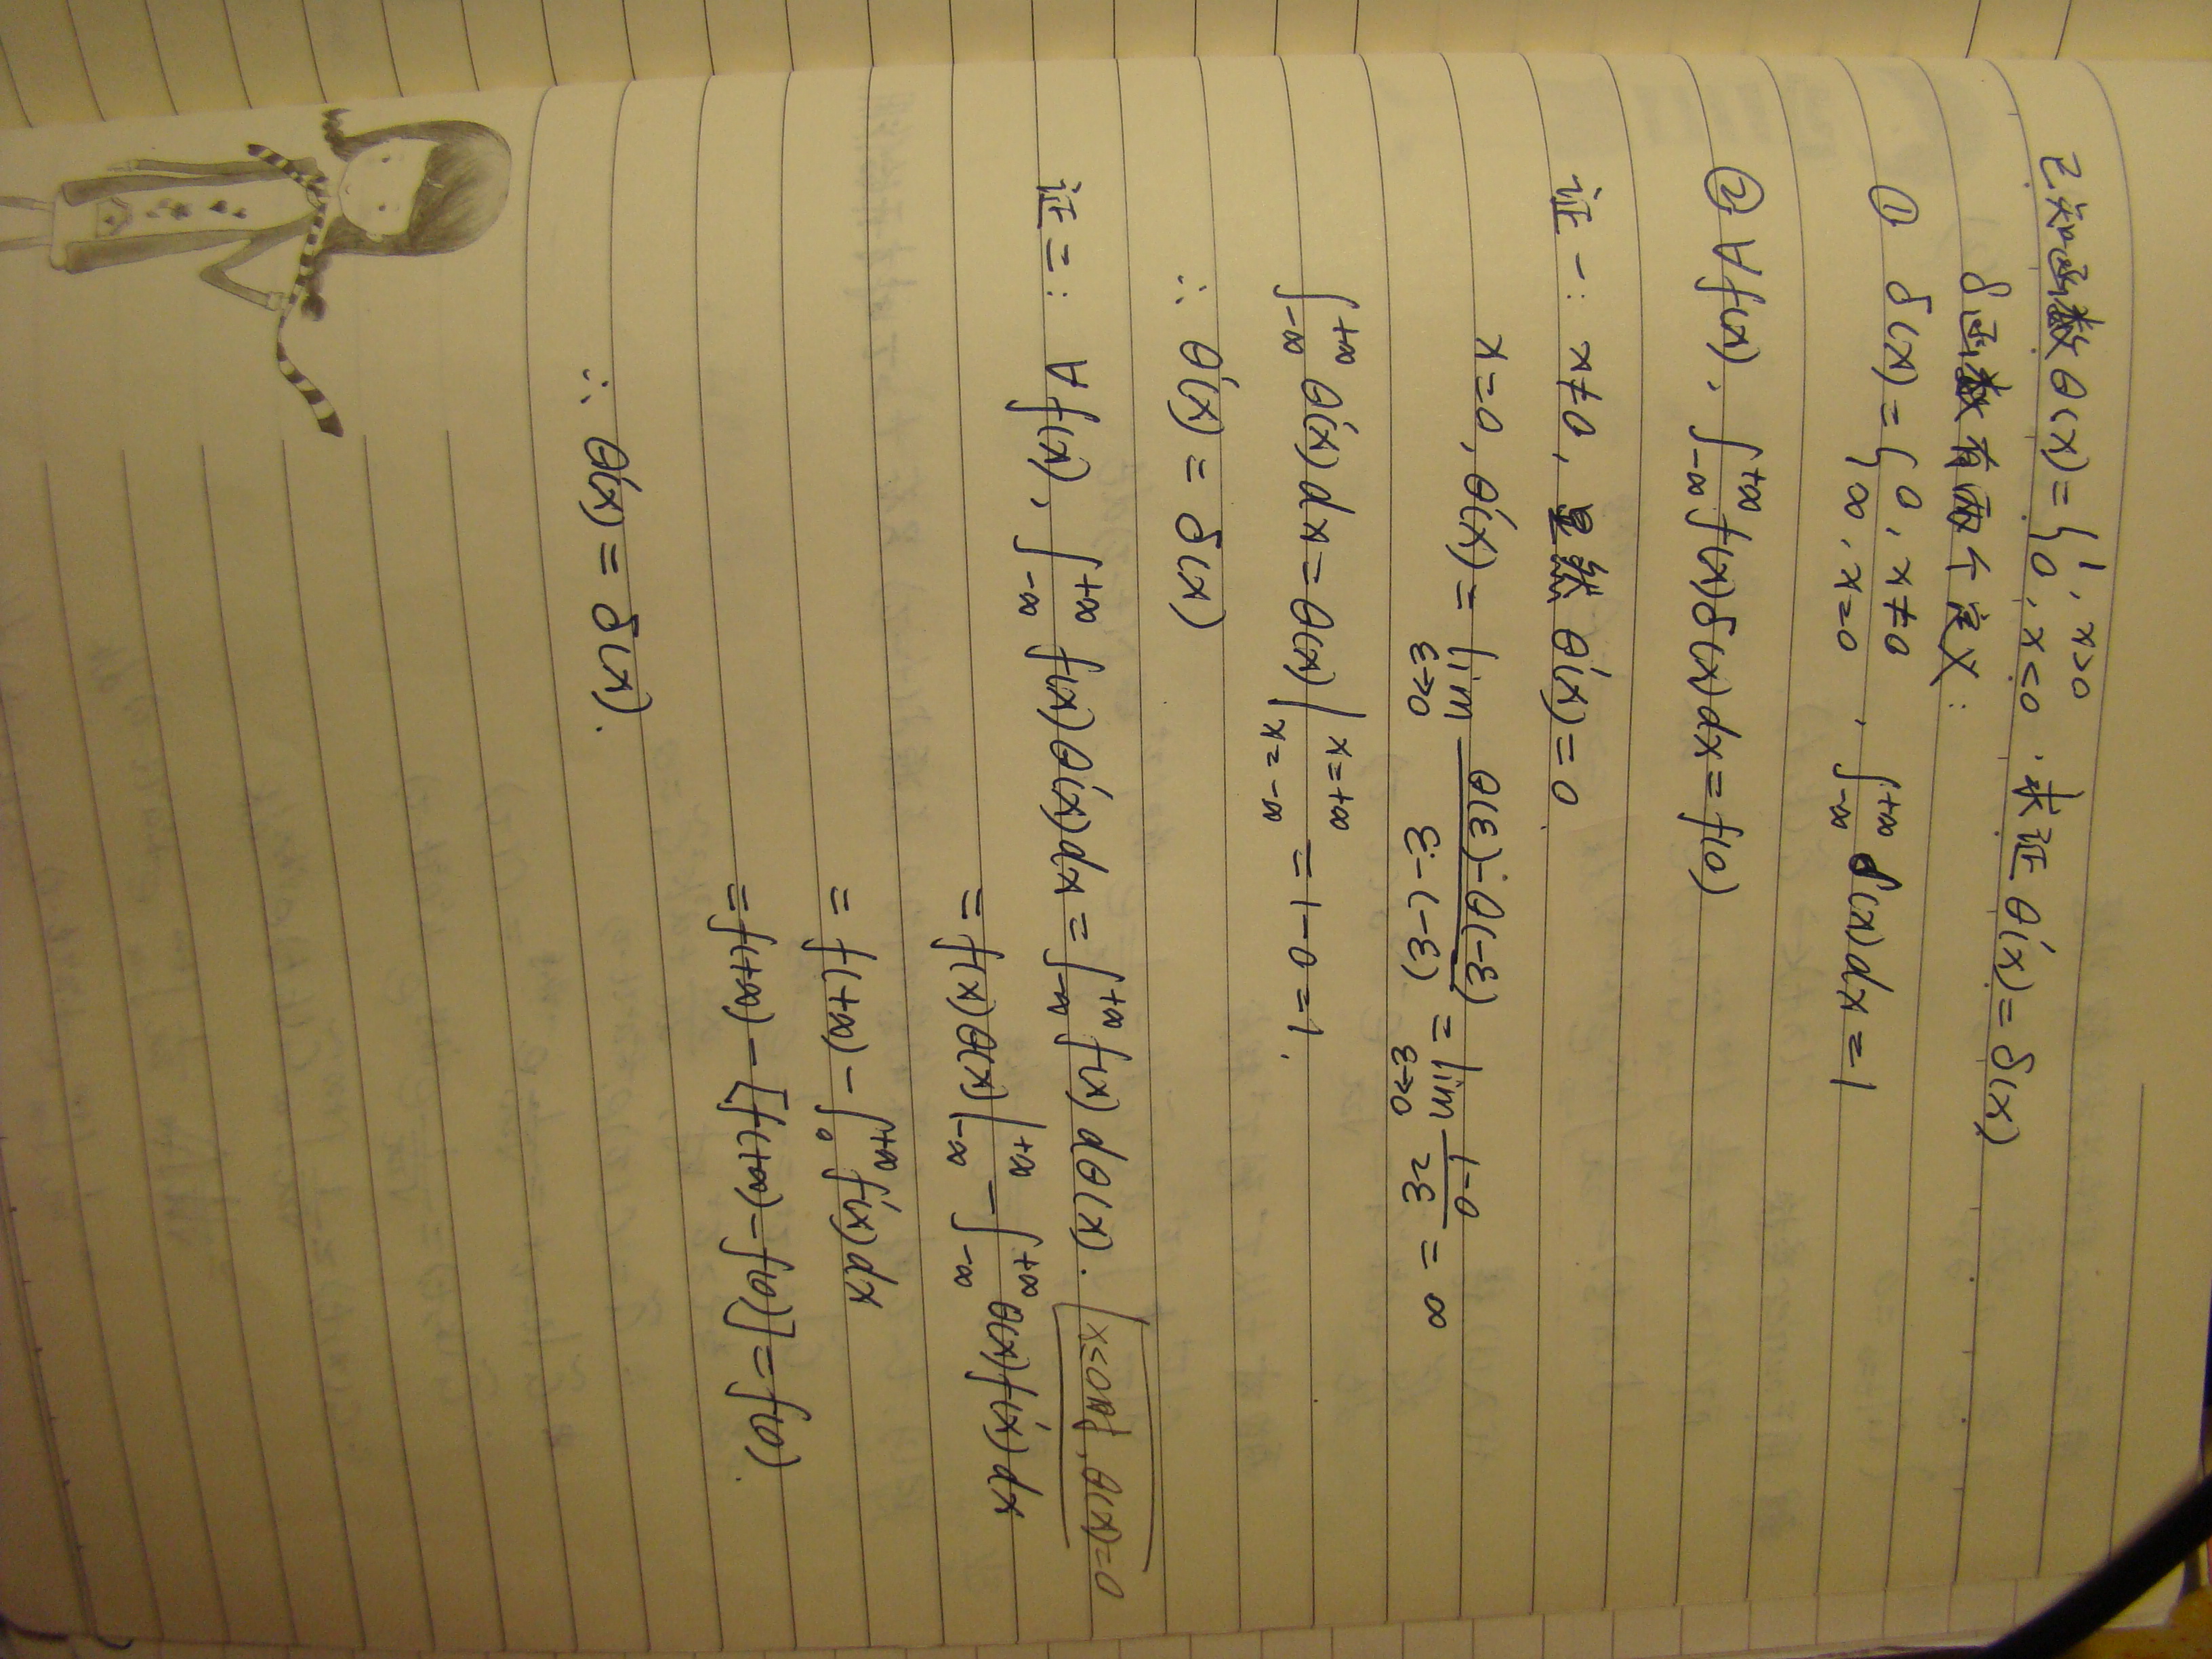 已知函数θ(x)={1, x>0; 0, x<0. 求证 θ'(x)=δ(x)
δ函数有两个定义:
① δ(x)={0, x≠0; ∞, x=0, ∫_{-∞}^{+∞} δ(x)dx=1
② ∀f(x), ∫_{-∞}^{+∞} f(x)δ(x)dx=f(0)
证一: x≠0, 显然 θ'(x)=0
x=0, θ'(x)=lim_{ε→0} (θ(ε)-θ(-ε))/(ε-(-ε)) = lim_{ε→0} (1-0)/(2ε) = ∞
∫_{-∞}^{+∞} θ'(x)dx=θ(x)|_{x=-∞}^{x=+∞} =1-0=1,
∴ θ'(x)=δ(x)
证二: ∀f(x), ∫_{-∞}^{+∞} f(x)θ'(x)dx=∫_{-∞}^{+∞} f(x)dθ(x). x<0时, θ(x)=0
=f(x)θ(x)|_{-∞}^{+∞} - ∫_{-∞}^{+∞} θ(x)f'(x)dx
=f(+∞)-∫_0^{+∞} f'(x)dx
=f(+∞)-[f(+∞)-f(0)]=f(0).
∴ θ'(x)=δ(x).